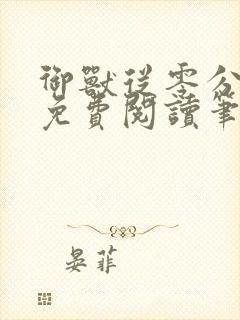 御獸從零分
免費閱讀筆
晏菲